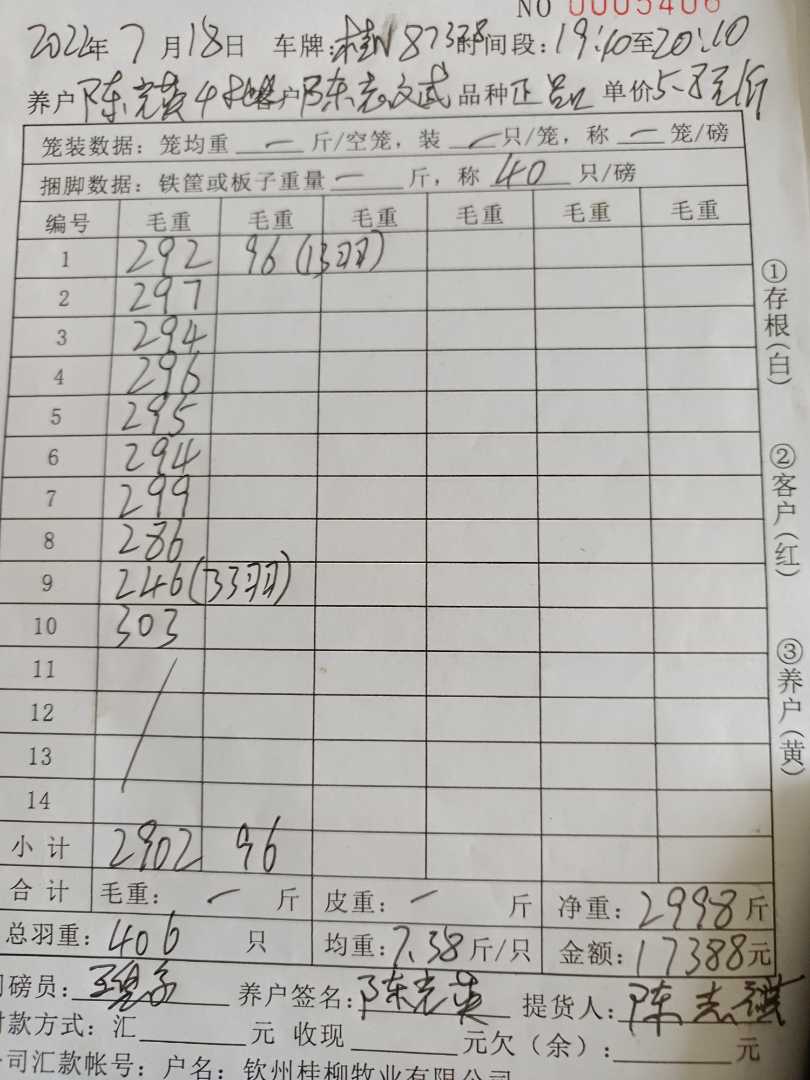 NO 0005406
2022年7月18日 车牌:桂N87378时间段:19:40至20:10
养户陈光英4 客户陈志文武 品种正 单价5.8元/斤
笼装数据: 笼均重 — 斤/空笼, 装 — 只/笼, 称 — 笼/磅
捆脚数据: 铁筐或板子重量 — 斤, 称 40 只/磅
编号 毛重 毛重 毛重 毛重 毛重 毛重
1 292 96(13羽)
2 297
3 294
4 296
5 295
6 294
7 299
8 286
9 246(33羽)
10 303
11
12
13
14
小计 2902 96
合计 毛重: — 斤 皮重: — 斤 净重: 2998斤
总羽重: 406 只 均重: 7.38斤/只 金额: 17388元
磅员: 养户签名: 陈光英 提货人: 陈志祺
付款方式: 汇 元 收现 元欠(余): 元
公司汇款帐号: 户名: 钦州桂柳牧业有限公司
①存根(白)
②客户(红)
③养户(黄)